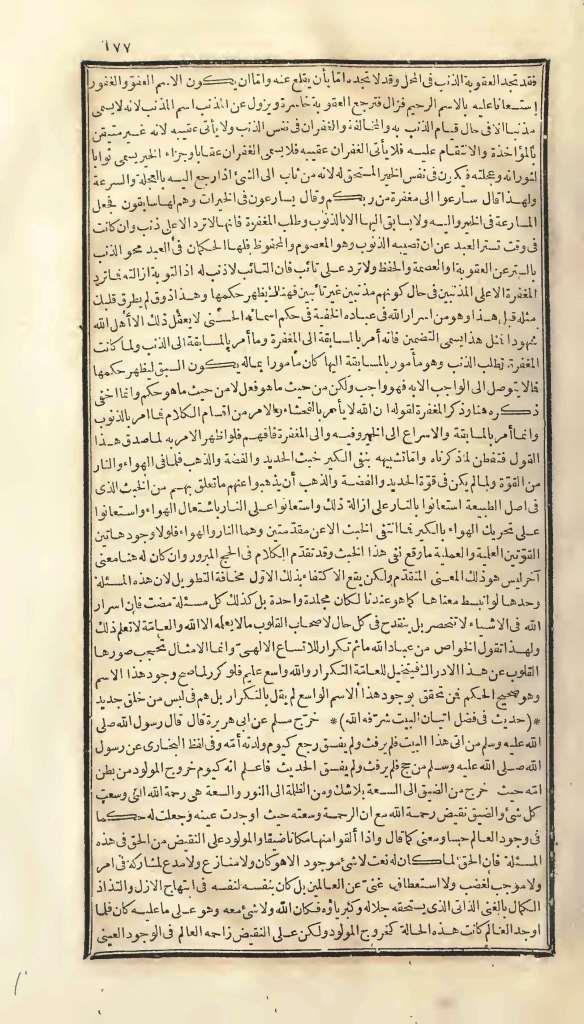 ٦٧٧
فقد تجد العقوبة الذنب في المحل وقد لا تجده امّا بأن يقلع عنه وامّا ان يكون الاسم العفوّ والغفور
استعانا عليه بالاسم الرحيم فزال فترجع العقوبة خاسرة ويزول عن المذنب اسم المذنب لانه لا يسمى
مذنبا الا في حال قيام الذنب به والمخالفة والغفران في نفس الذنب ولا يأتي عقيبه لانه غير متيقن
بالمؤاخذة والانتقام عليه فلا يأتي الغفران عقيبه فلا يسمى الغفران عقابا وجزاء الخير يسمى ثوابا
لثورانه وعجلته فيكون في نفس الخير المستحق له لانه من ثاب الى الشئ اذا رجع اليه بالعجلة والسرعة
ولهذا قال سارعوا الى مغفرة من ربكم وقال يسارعون في الخيرات وهم لها سابقون فجعل
المسارعة في الخير واليه ولا يسابق اليها الا بالذنوب وطلب المغفرة فانها لا ترد الا على ذنب وان كانت
في وقت تستر العبد عن ان تصيبه الذنوب وهو المعصوم والمحفوظ فلها الحكمان في العبد محو الذنب
بالستر عن العقوبة او العصمة والحفظ ولا ترد على تائب فان التائب لا ذنب له اذ التوبة ازالته فما ترد
المغفرة الا على المذنبين في حال كونهم مذنبين غير تائبين فهناك يظهر حكمها وهذا ذوق لم يطرق قلبك
مثله قبل هذا وهو من اسرار الله في عباده الخفية في حكم اسمائه الحسنى لا يعقل ذلك الا أهل الله
شهودا فمثل هذا يسمى التضمين فانه أمر بالمسابقة الى المغفرة وما أمر بالمسابقة الى الذنب ولما كانت
المغفرة تطلب الذنب وهو مأمور بالمسابقة اليها كان مأمورا بما له يكون السبق ليظهر حكمها
فما لا يتوصل الى الواجب الا به فهو واجب ولكن من حيث ما هو فعل لا من حيث ما هو حكم وانما اخفى
ذكره هنا وذكر المغفرة لقوله ان الله لا يأمر بالفحشاء والامر من اقسام الكلام فما امر بالذنوب
وانما أمر بالمسابقة والاسراع الى الخير وفيه والى المغفرة فافهم فلو اظهر الامر به لما صدق هذا
القول فتفطن لما ذكرناه وامّا تشبيهه بنفي الكير خبث الحديد والفضة والذهب فلما في الهواء والنار
من القوّة ولما لم يكن في قوّة الحديد والفضة والذهب أن يذهبوا عنهم ما تعلق بهم من الخبث الذي
في اصل الطبيعة استعانوا بالنار على ازالة ذلك واستعانوا على النار باشتعال الهواء واستعانوا
على تحريك الهواء بالكير فما انتفى الخبث الا عن مقدّمتين وهما النار والهواء فلولا وجود هاتين
القوّتين العلمية والعملية ما وقع نفي هذا الخبث وقد تقدّم الكلام في الحج المبرور وان كان له هنا معنى
آخر ليس هو ذلك المعنى المتقدّم ولكن يقع الاكتفاء بذلك الاول مخافة التطويل لان هذه المسئلة
وحدها لو انبسط معناها كما هو عندنا لكان مجلدة واحدة بل كذلك كل مسئلة مضت فان اسرار
الله في الاشياء لا تنحصر بل ينقدح في كل حال لاصحاب القلوب ما لا يعلمه الا الله والعامّة لا تعلم ذلك
ولهذا تقول الخواص من عباد الله ما ثم تكرار للاتساع الالهيّ وانما الامثال تحجب صورها
القلوب عن هذا الادراك فيتخيل للعامّة التكرار والله واسع عليم فلو كرر لما صح وجود هذا الاسم
وهو صحيح الحكم فمن تحقق بوجود هذا الاسم الواسع لم يقل بالتكرار بل هم في لبس من خلق جديد
* (حديث في فضل اتيان البيت شرّفه الله) * خرّج مسلم عن ابي هريرة قال قال رسول الله صلى
الله عليه وسلم من اتى هذا البيت فلم يرفث ولم يفسق رجع كيوم ولدته أمّه وفي لفظ البخارى عن رسول
الله صلى الله عليه وسلم من حج فلم يرفث ولم يفسق الحديث فاعلم انه كيوم خروج المولود من بطن
امّه حيث خرج من الضيق الى السعة بلا شك ومن الظلمة الى النور والسعة هي رحمة الله التي وسعت
كل شئ والضيق نقيض رحمة الله مع ان الرحمة وسعته حيث اوجدت عينه وجعلت له حكما
في وجود العالم حسا ومعنى كما قال واذا ألقوا منها مكانا ضيقا والمولود على النقيض من الحق في هذه
المسئلة فان الحق لما كان له نعت لا شئ موجود الا هو كان ولا منازع ولا مدع مشاركة في امر
ولا موجب لغضب ولا استعطاف غنيّ عن العالمين بل كان بنفسه لنفسه في ابتهاج الازل والتذاذ
الكمال بالغنى الذاتي الذي يستحقه جلاله وكبرياؤه فكان الله ولا شئ معه وهو على ما عليه كان فلما
اوجد العالم كانت هذه الحالة كخروج المولود ولكن على النقيض زاحمه العالم في الوجود العيني